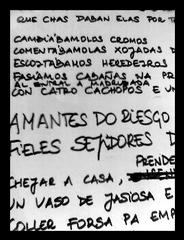 QUE CHAS DABAN ELAS POR T
CAMBIÁBAMOLAS CROMOS
COMENTÁBAMOLAS XOJADAS D
ESCOITÁBAMOS HEREDEIROS
FASIAMOS CABAÑAS NA PR
AL
CON CATRO CACHOPOS E UN
AMANTES DO RIESGO
FIELES SEJIDORES D
PRENDE
CHEJAR A CASA,
UN VASO DE JASIOSA E
COLLER FORSA PA EMP